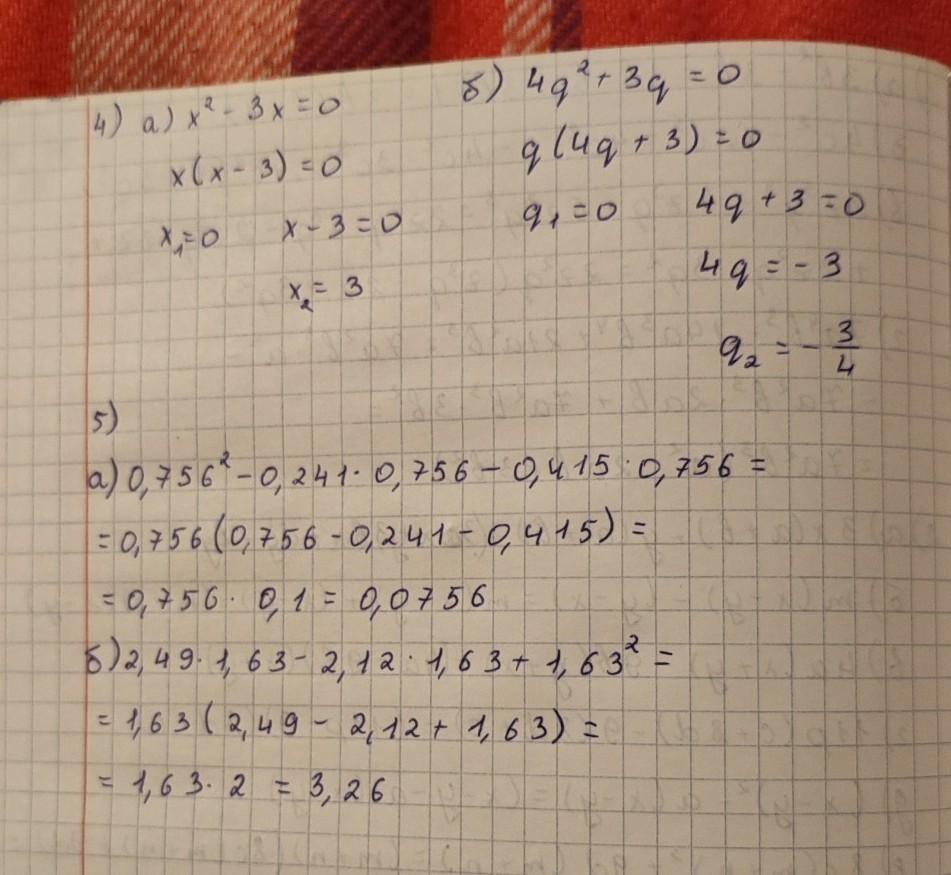 4) а) x² - 3x = 0
x(x - 3) = 0
x₁=0 x - 3 = 0
x₂ = 3
б) 4q² + 3q = 0
q(4q + 3) = 0
q₁ = 0 4q + 3 = 0
4q = - 3
q₂ = - 3/4
5)
а) 0,756² - 0,241 · 0,756 - 0,415 · 0,756 =
= 0,756(0,756 - 0,241 - 0,415) =
= 0,756 · 0,1 = 0,0756
б) 2,49 · 1,63 - 2,12 · 1,63 + 1,63² =
= 1,63(2,49 - 2,12 + 1,63) =
= 1,63 · 2 = 3,26